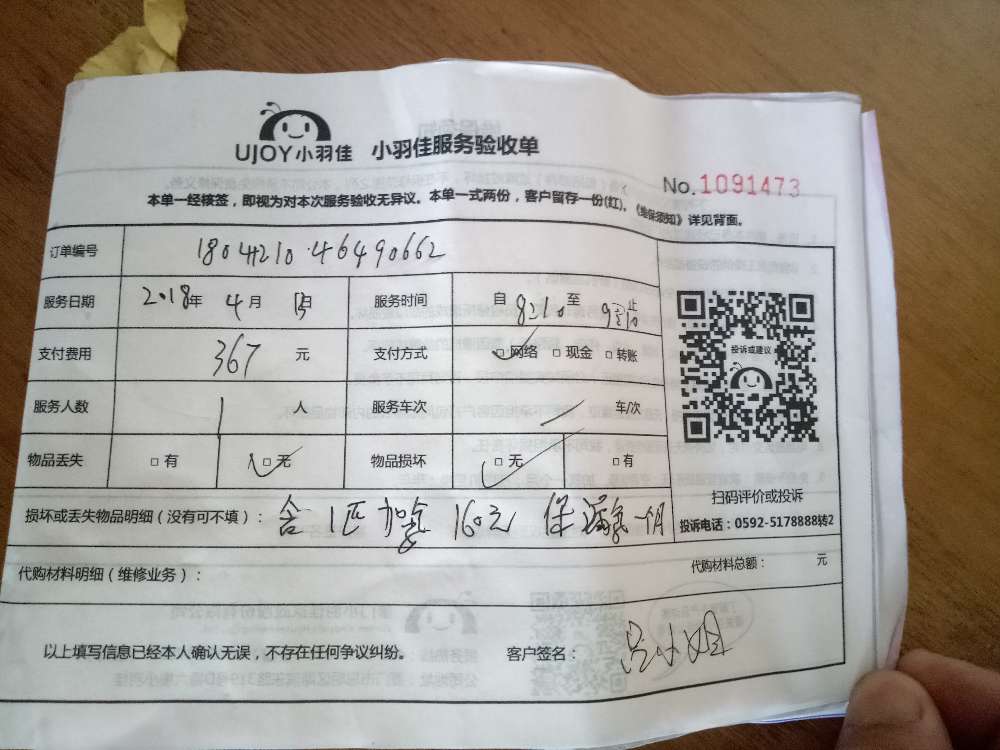 UJOY小羽佳 小羽佳服务验收单
No.1091473
本单一经核签，即视为对本次服务验收无异议。本单一式两份，客户留存一份(红)。《维保须知》详见背面。
订单编号 1804210·46490662
服务日期 2018年 4月 日 服务时间 自 8210 至
支付费用 367 元 支付方式 □网络 □现金 □转账
服务人数 1 人 服务车次 车/次
物品丢失 □有 □无 物品损坏 □无 □有
投诉或建议
扫码评价或投诉
投诉电话：0592-5178888转2
损坏或丢失物品明细（没有可不填）： 含 1匹 加氨 160元 保 一月
代购材料明细（维修业务）： 代购材料总额： 元
以上填写信息已经本人确认无误，不存在任何争议纠纷。 客户签名： 吕小姐